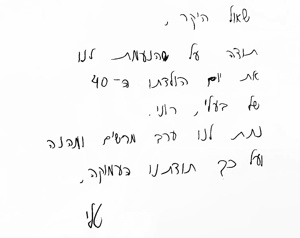 שאול היקר,
תודה על שהנעמת לנו
את יום הולדתו ה-40
של בעלי, רוני.
נתת לנו ערב מרשים ומהנה
ועל כך תודתנו העמוקה,
טלי